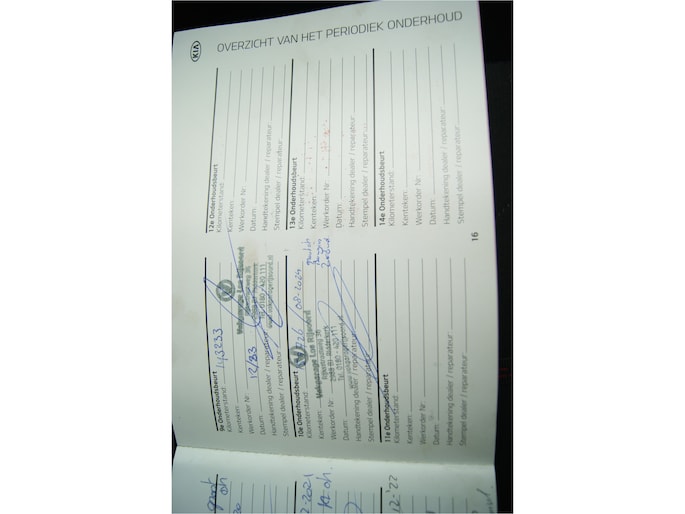 KIA
OVERZICHT VAN HET PERIODIEK ONDERHOUD
9e Onderhoudsbeurt
Kilometerstand: 143233
Kenteken:
Werkorder Nr: 12/23
Datum:
Handtekening dealer / reparateur:
Stempel dealer / reparateur:
Tel. 0180 - 420 111
10e Onderhoudsbeurt
Kilometerstand: 08-2024
Kenteken:
Werkorder Nr:
Datum:
Handtekening dealer / reparateur:
Stempel dealer / reparateur:
Tel. 0180 - 420 111
11e Onderhoudsbeurt
Kilometerstand:
Kenteken:
Werkorder Nr:
Datum:
Handtekening dealer / reparateur:
Stempel dealer / reparateur:
12e Onderhoudsbeurt
Kilometerstand:
Kenteken:
Werkorder Nr:
Datum:
Handtekening dealer / reparateur:
Stempel dealer / reparateur:
13e Onderhoudsbeurt
Kilometerstand:
Kenteken:
Werkorder Nr:
Datum:
Handtekening dealer / reparateur:
Stempel dealer / reparateur:
14e Onderhoudsbeurt
Kilometerstand:
Kenteken:
Werkorder Nr:
Datum:
Handtekening dealer / reparateur:
Stempel dealer / reparateur:
16